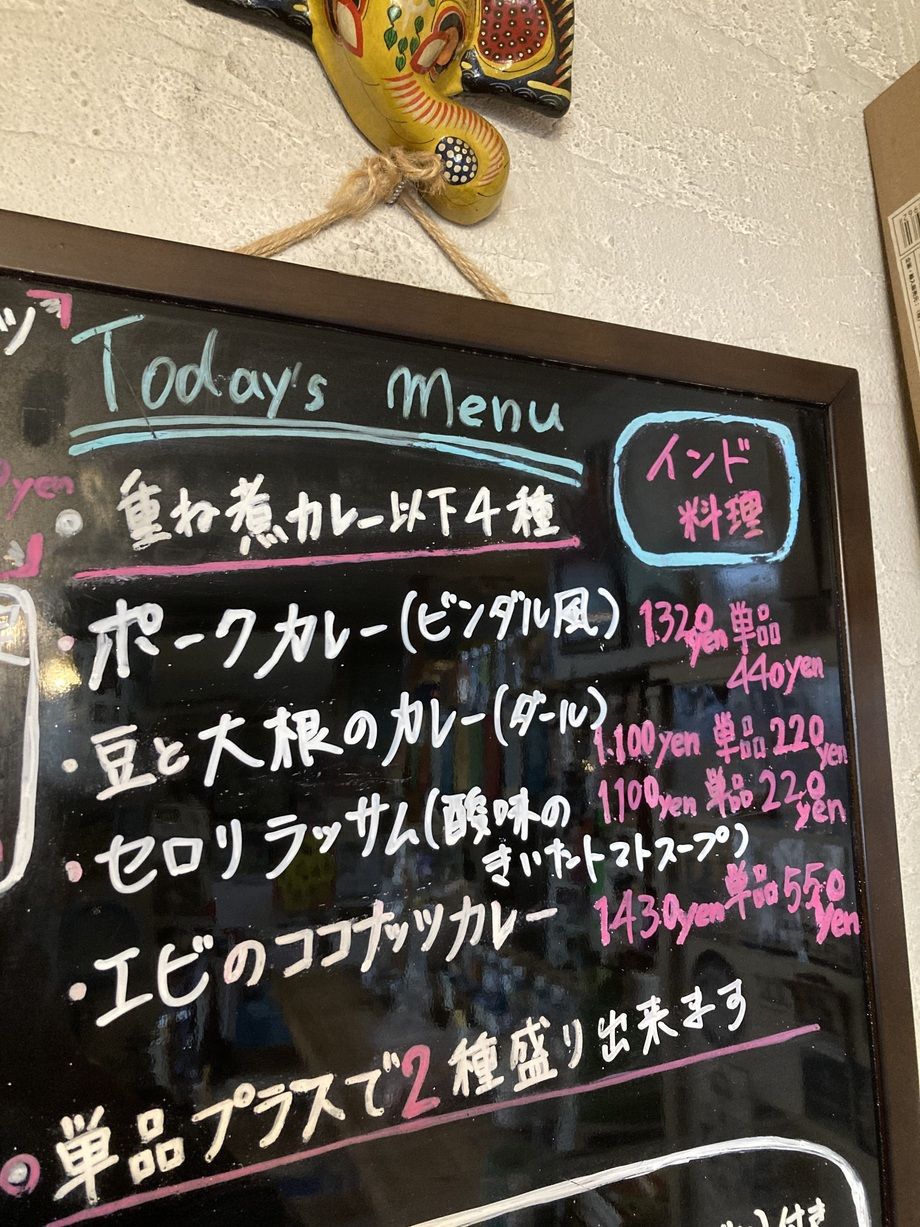 Today's Menu
インド
料理
重ね煮カレー以下4種
・ポークカレー(ビンダル風) 1320yen 単品
440yen
・豆と大根のカレー(ダール) 1.100yen 単品220yen
・セロリラッサム(酸味の 1100yen 単品220yen
きいたトマトスープ)
・エビのココナッツカレー 1430yen 単品550yen
単品プラスで2種盛り出来ます
付き
ツ
yen